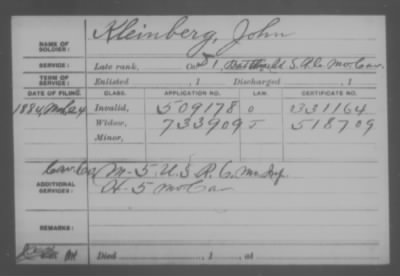 Kleinberg, John
NAME OF SOLDIER:
SERVICE: Late rank, Co. 1, S. A. C. Mo. Cav.
TERM OF SERVICE: Enlisted , 1 Discharged , 1
DATE OF FILING. CLASS. APPLICATION NO. LAW. CERTIFICATE NO.
1884 May 24 Invalid, 509178 331164
Widow, 733909 J 518709
Minor,
ADDITIONAL SERVICES: M-5 U.S.R.C. Mo. Inf.
H-5 Mo Cav
REMARKS:
Died , 1 , at